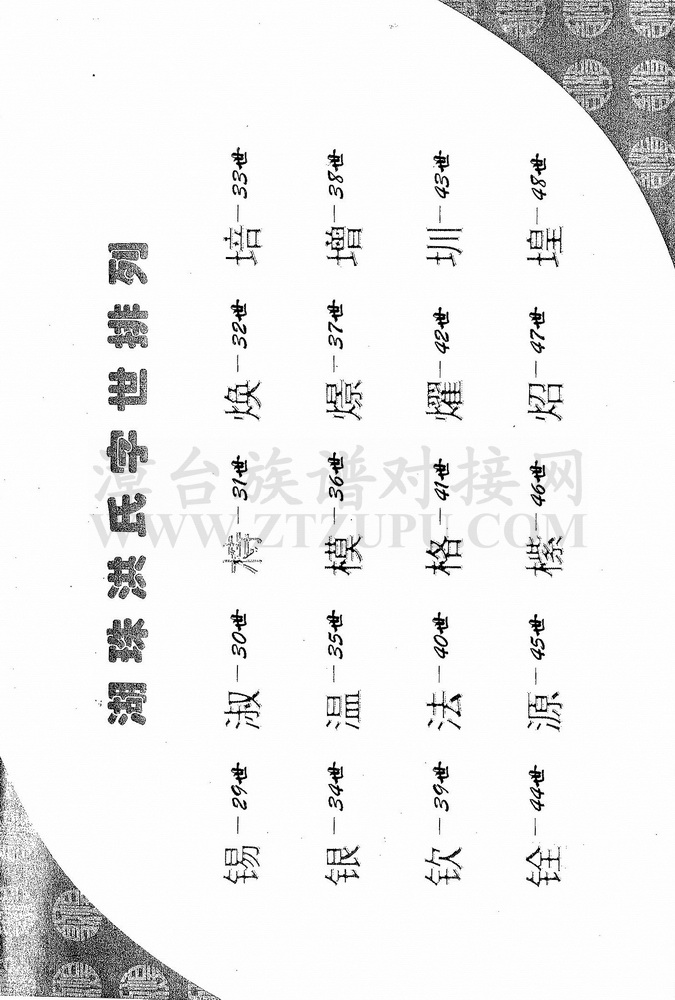 湖珠洪氏字世排列
锡—29世 淑—30世 梼—31世 焕—32世 培—33世
银—34世 温—35世 模—36世 燝—37世 增—38世
钦—39世 法—40世 格—41世 燿—42世 圳—43世
铨—44世 源—45世 46世 炤—47世 堭—48世
漳台族谱对接网
WWW.ZTZUPU.COM